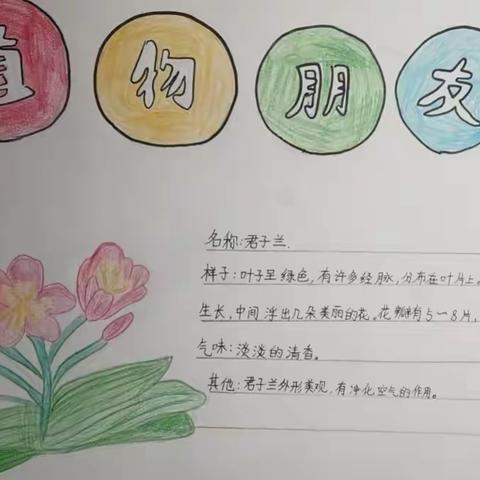 植物朋友
名称:君子兰.
样子:叶子呈绿色,有许多经脉,分布在叶片上。
生长,中间浮出几朵美丽的花。花瓣有5一8片,
气味:淡淡的清香。
其他:君子兰外形美观,有净化空气的作用。